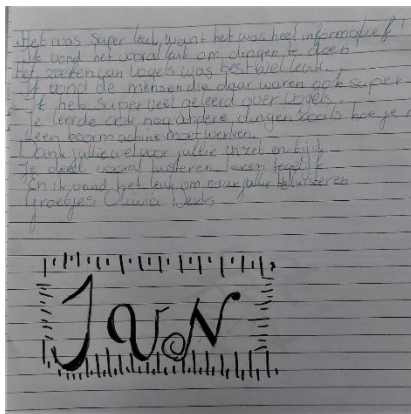 Het was super leuk, want het was heel informatief!
Ik vond het vooral leuk om dingen te doen
Het zoeken van vogels was best wel leuk.
Ik vond de mensen die daar waren ook super-
Ik heb super veel geleerd over vogels.
Je leerde ook nog andere dingen zoals hoe je m
een boormachine moet werken.
Dank jullie wel voor jullie inzet en tijd
Je deed vooral luisteren leren tegelijk
En ik vond het leuk om naar jullie te luisteren
Groetjes Olivia
JVN